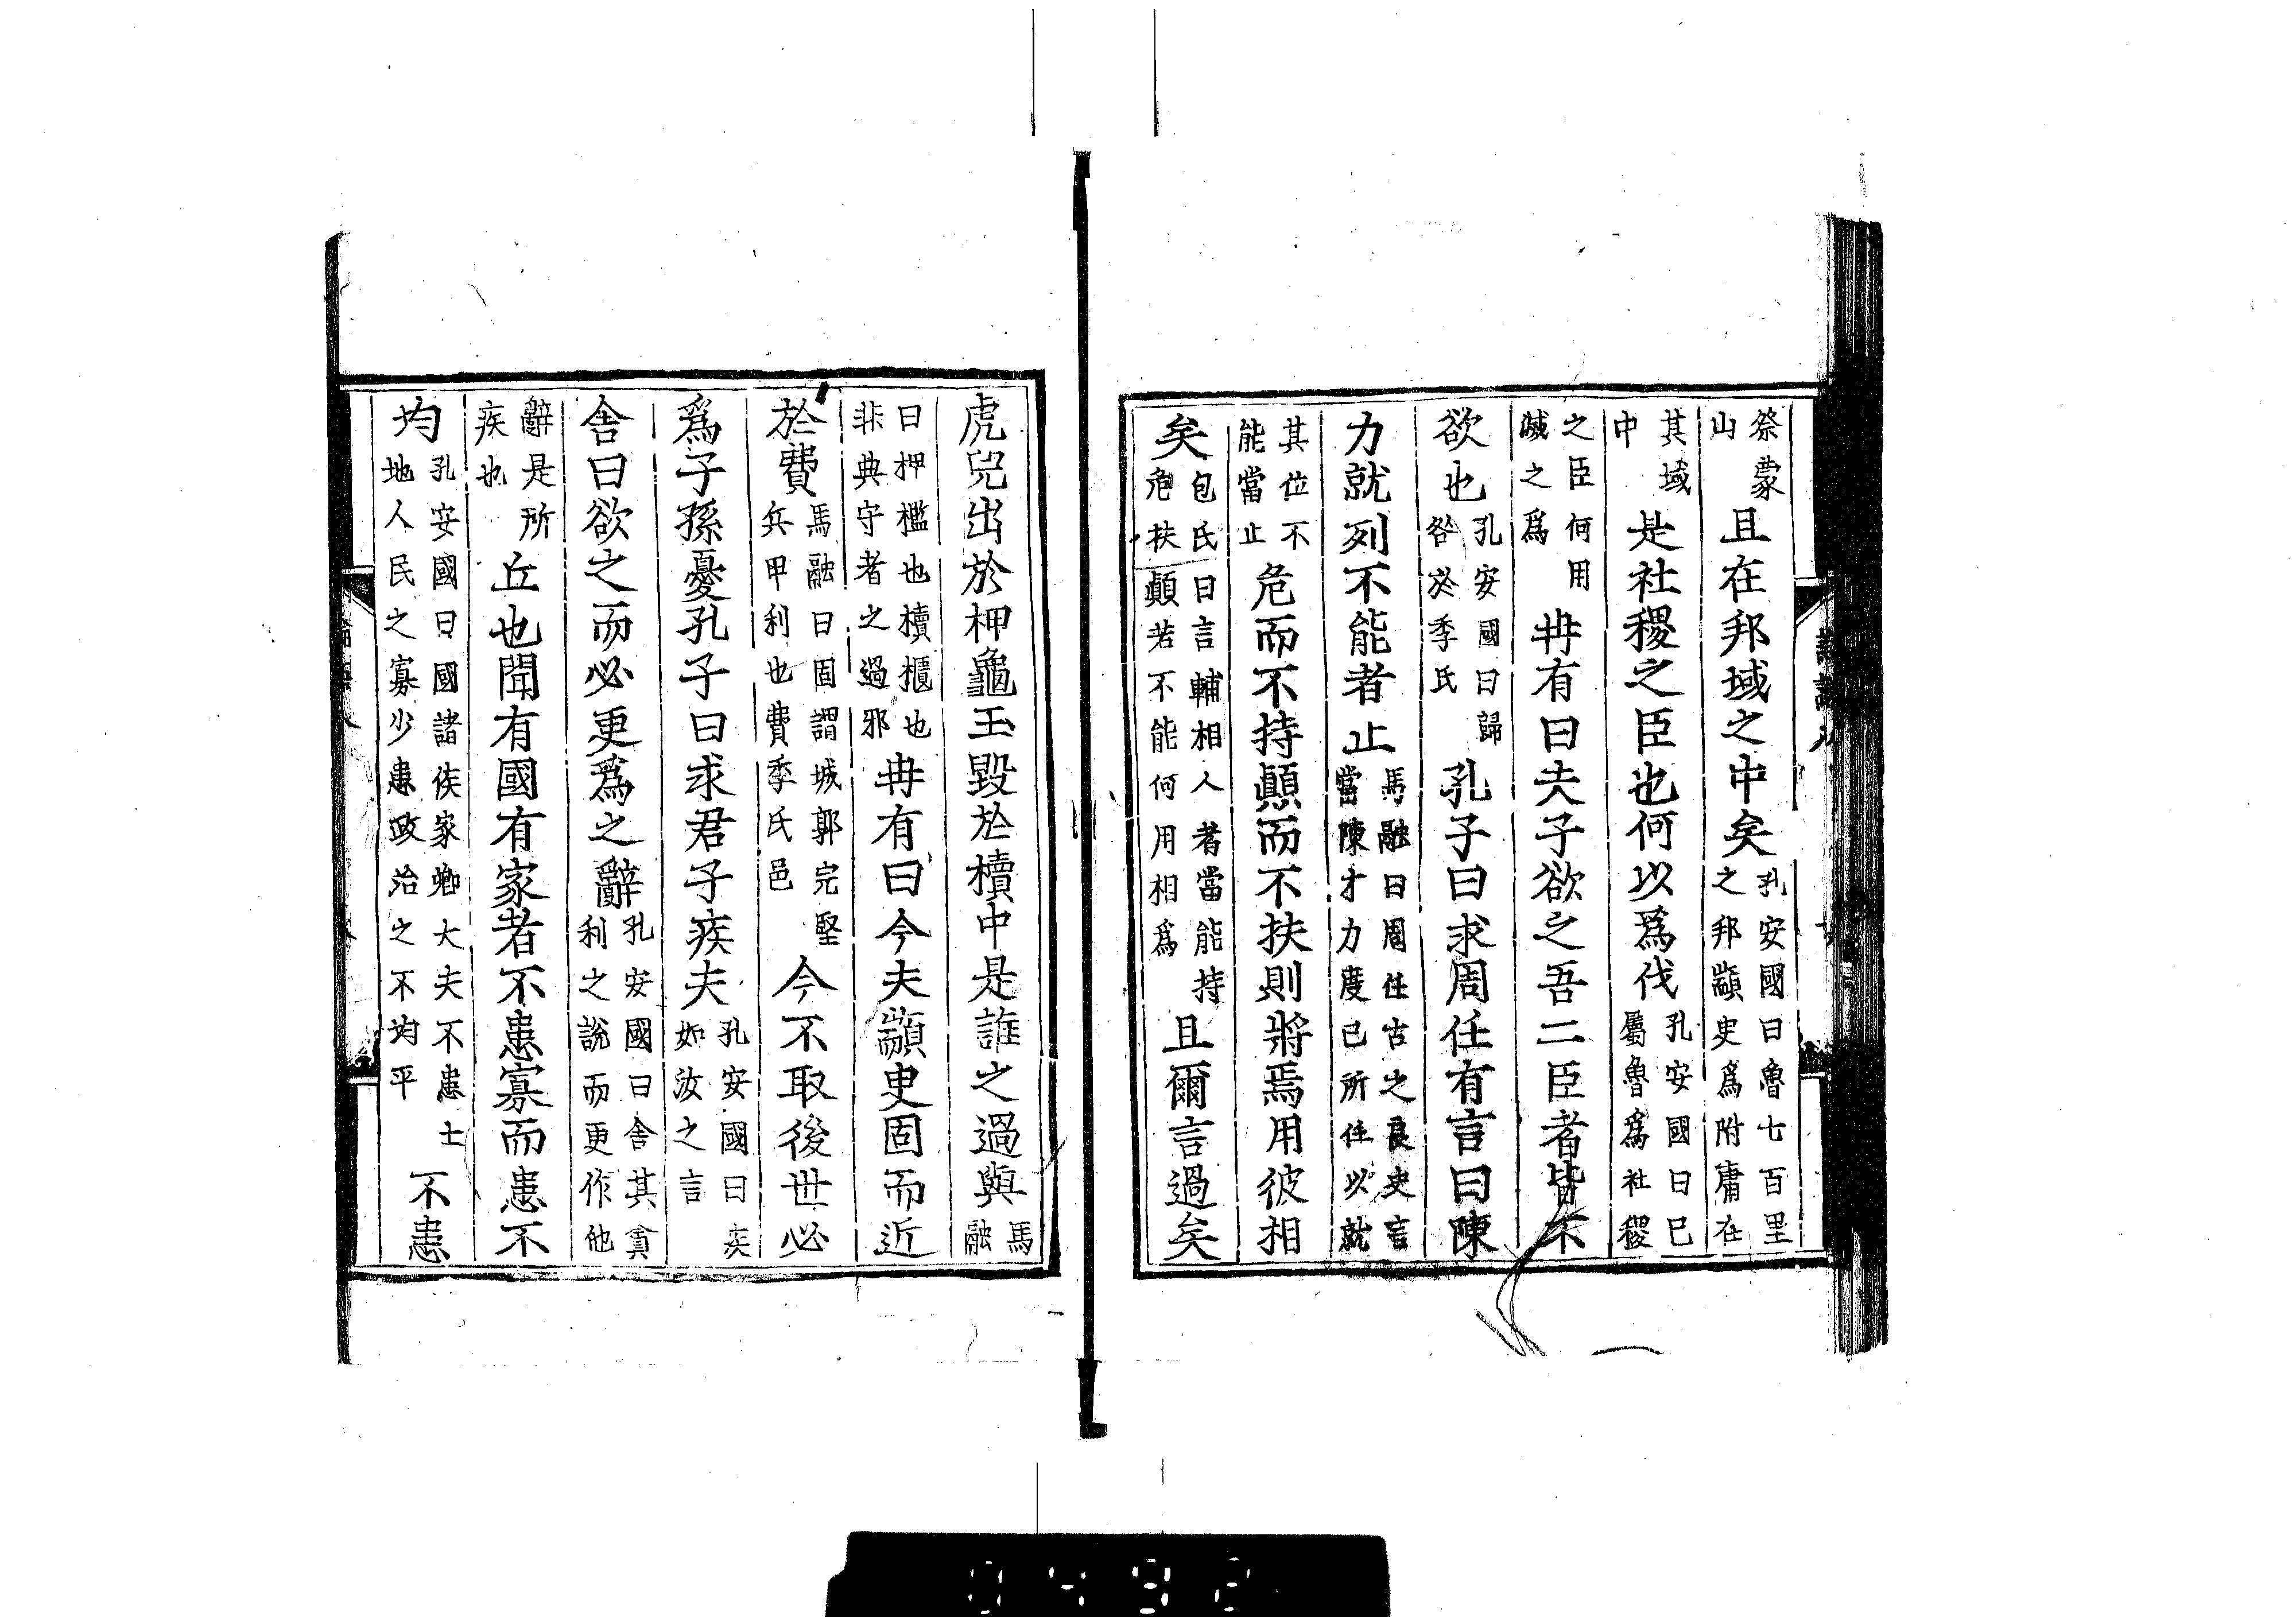 祭蒙山且在邦域之中矣孔安國曰魯七百里之邦顓臾為附庸在
其域中是社稷之臣也何以為伐孔安國曰已屬魯為社稷
之臣何用滅之為冉有曰夫子欲之吾二臣者皆不
欲也孔安國曰歸咎於季氏孔子曰求周任有言曰陳
力就列不能者止馬融曰周任古之良史言當陳才力度己所任以就
其位不能當止危而不持顛而不扶則將焉用彼相
矣包氏曰言輔相人者當能持危扶顛若不能何用相為且爾言過矣
虎兕出於柙龜玉毀於櫝中是誰之過與馬融
曰柙檻也櫝櫃也非典守者之過邪冉有曰今夫顓臾固而近
於費馬融曰固謂城郭完堅兵甲利也費季氏邑今不取後世必
為子孫憂孔子曰求君子疾夫孔安國曰疾如汝之言
舍曰欲之而必更為之辭孔安國曰舍其貪利之說而更作他
辭是所疾也丘也聞有國有家者不患寡而患不
均孔安國曰國諸侯家卿大夫不患士地人民之寡少患政治之不均平不患
0492